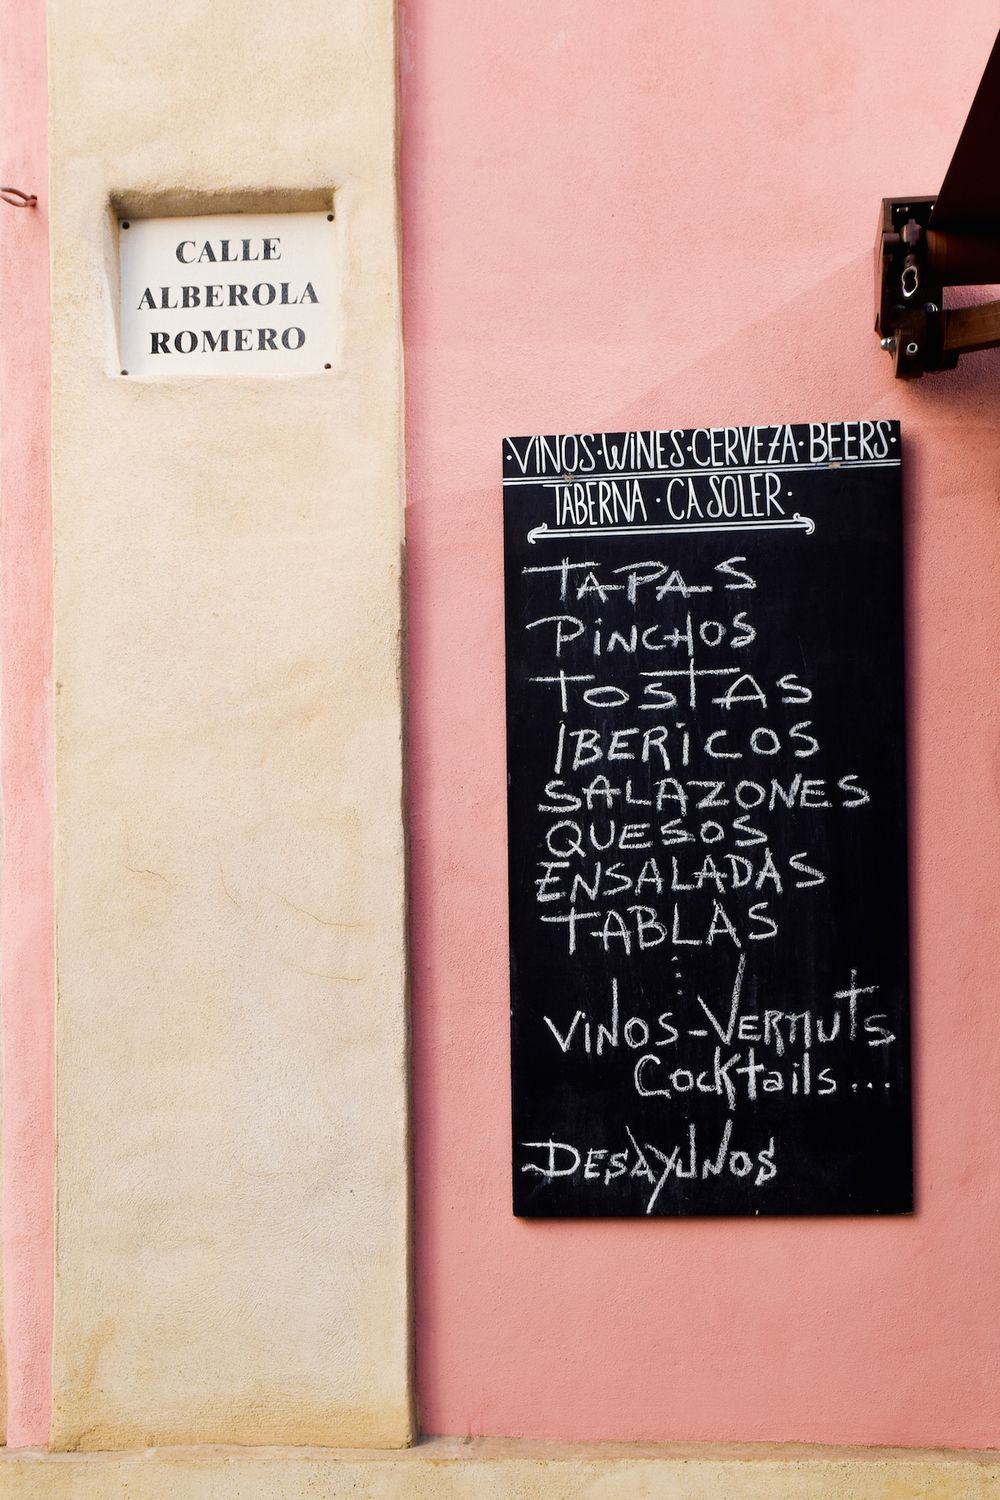 CALLE
ALBEROLA
ROMERO
·VINOS·WiNES·CERVEZA·BEERS·
TABERNA · CA SOLER·
TAPAS
PiNCHOS
TOSTAS
IBERiCOS
SALAZONES
QUESOS
ENSALADAS
TABLAS
⋮
ViNOS-VERMUTS
Cocktails...
DESAYUNOS